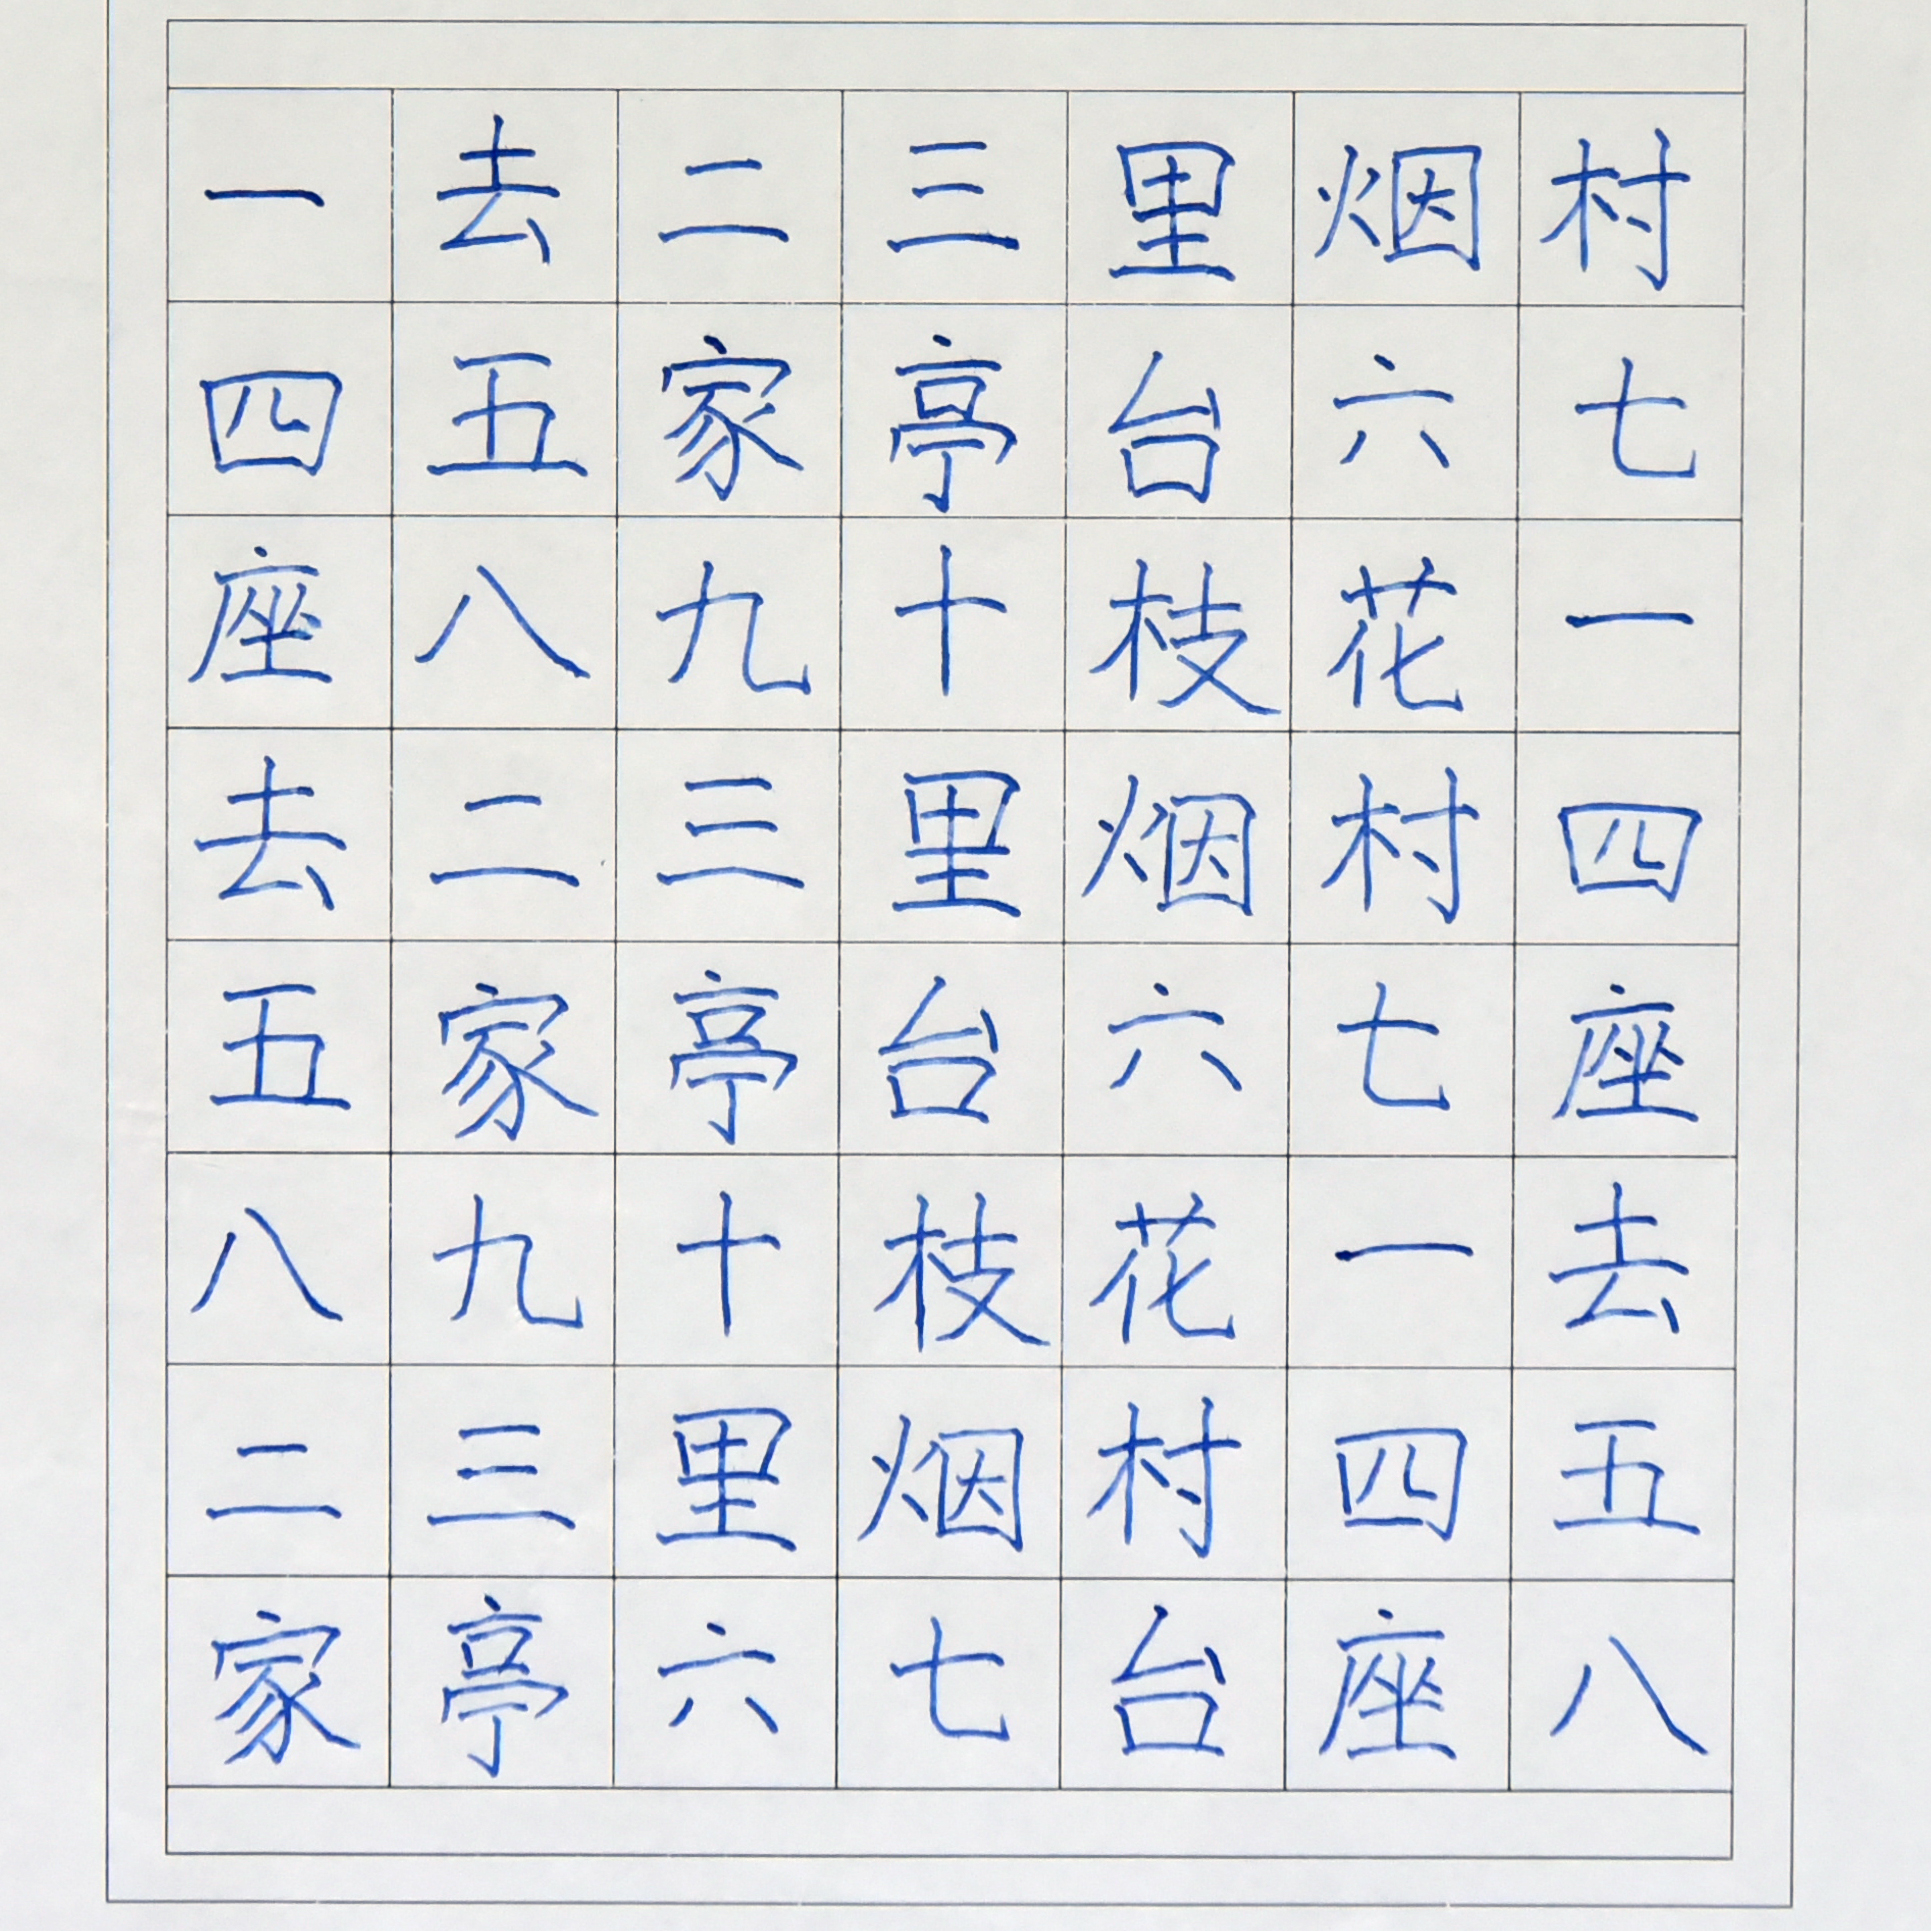 一去二三里烟村
四五家亭台六七
座八九十枝花一
去二三里烟村四
五家亭台六七座
八九十枝花一去
二三里烟村四五
家亭六七台座八